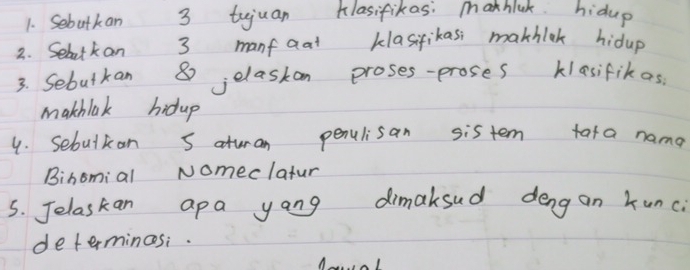 1. Sebutkan 3 tujuan klasifikasi makhluk hidup
2. Sebutkan 3 manfaat klasifikasi makhluk hidup
3. Sebutkan & jelaskan proses-proses klasifikasi
makhluk hidup
4. Sebutkan 5 aturan penulisan sistem tata nama
Binomial Nomeclatur
5. Jelaskan apa yang dimaksud dengan kunci
determinasi.
Jawab